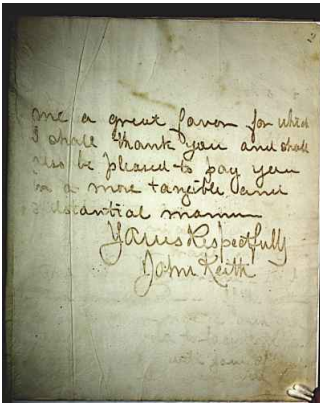 me a great favor for which
I shall thank you and shall
also be pleased to pay you
in a more tangible and
substantial manner
Yours Respectfully
John Keith